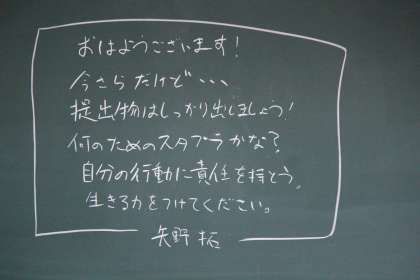 おはようございます!
今さらだけど、、、
提出物はしっかり出しましょう!
何のためのスタプラかな?
自分の行動に責任を持とう。
生きる力をつけてください。
矢野 拓